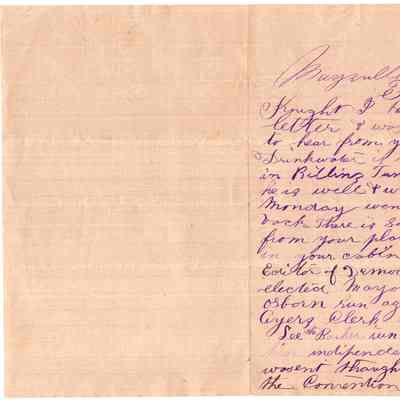 Knight I
letter & was
to hear from y
Drinkwater is
in Billings
he is well & w
Monday
back There is
from your pla
in your cabin
Editor of Democ
elected Mayo
Osborn run ag
Ayers Clerk
See the Barker run
indipende
wosent straugh
the Convention